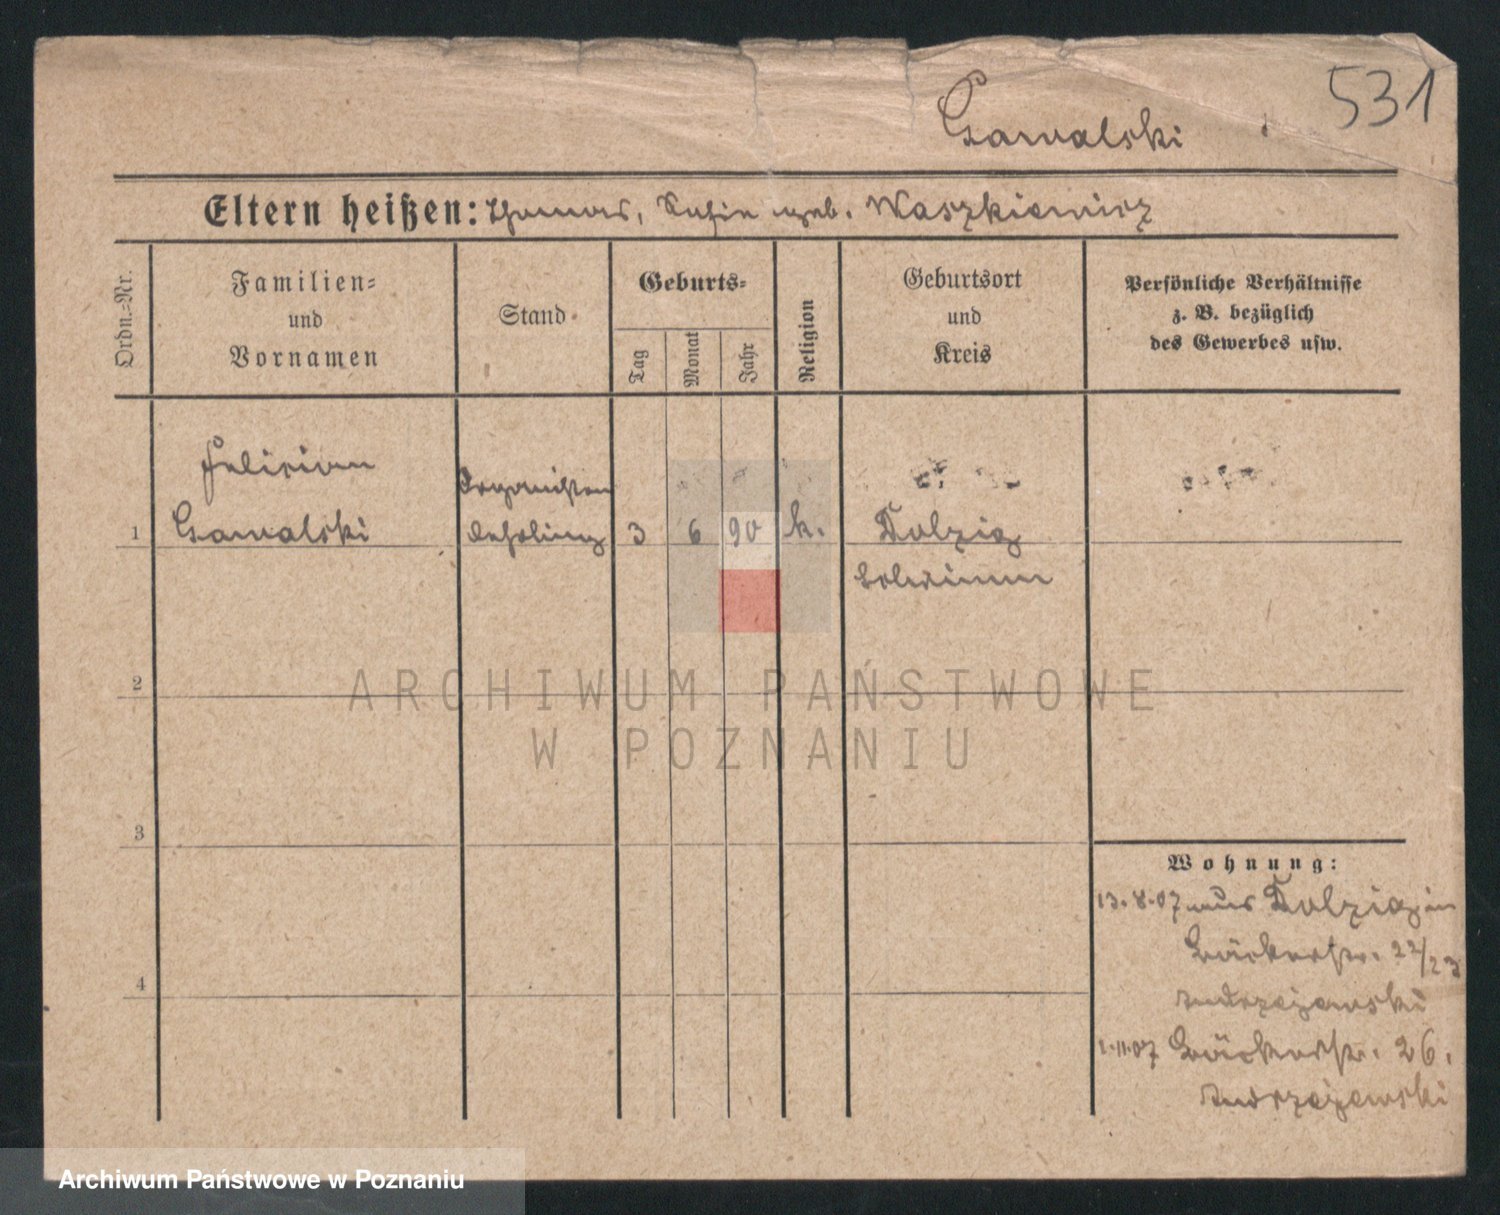 531
Gawalski
Eltern heißen: Thomas, Sofie geb. Waszkiewicz
Ordn.-Nr.
Familien- und Vornamen
Stand
Geburts-
Tag
Monat
Jahr
Religion
Geburtsort und Kreis
Persönliche Verhältnisse
z. B. bezüglich
des Gewerbes usw.
Felician
Organisten
1 Gawalski Lehrling 3 6 90 k. Dolzig
Schrimm
2
ARCHIWUM PAŃSTWOWE
W POZNANIU
3
Wohnung:
13.8.07 aus Dolzig in
Bäckerstr. 22/23
4
Andrzejewski
1.11.07 Bäckerstr. 26.
Andrzejewski
Archiwum Państwowe w Poznaniu